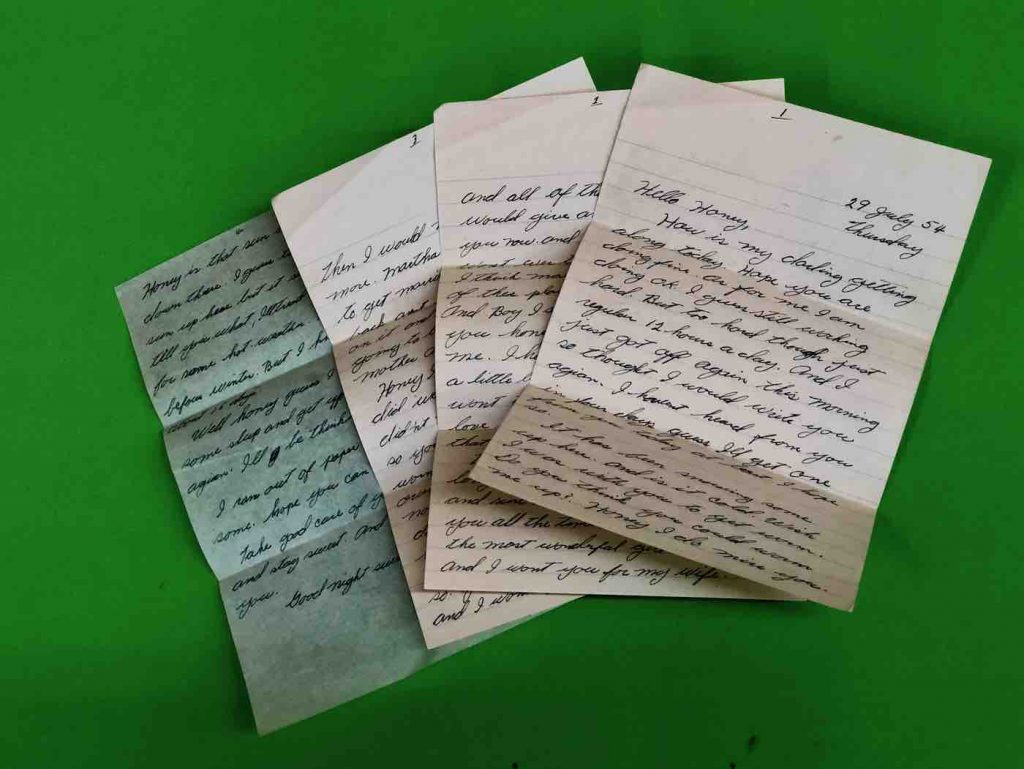 1
29 July 54
Thursday
Hello Honey,
How is my darling getting
along today. Hope you are
doing fine as for me I am
doing ok. I guess still working
hard. But too hard though. Just
regular 12 hours a day. And I
Just got off again this morning
so thought I would write you
again. I havent heard from you
guess I'll get one
It has been raining some
up here and it is cold. Wish
I was with you to get warm.
Do you think you could warm
me up? Honey I do miss you.
and all of th
would give a
you now. and
I think ma
of thee pla
and Boy I
you hone
me. I ha
a little
wont
love
tha
and
you all the tim
the most wonderful gi
and I want you for my wife.
3
Then I would
more. Martha
to get marri
back and
on it and
going to
mother a
Honey I
did w
didn't
so you
wou
so. I
and I won
Honey is that sun
down there. I guess t
sun up hear but it
tell you what, I
for some hot weather
before winter. But I ha
Well honey guess I
some sleep and get u
again. I'll be think
I ran out of paper
some. hope you can
Take good care of y
and stay sweet. And
you.
Good night swe